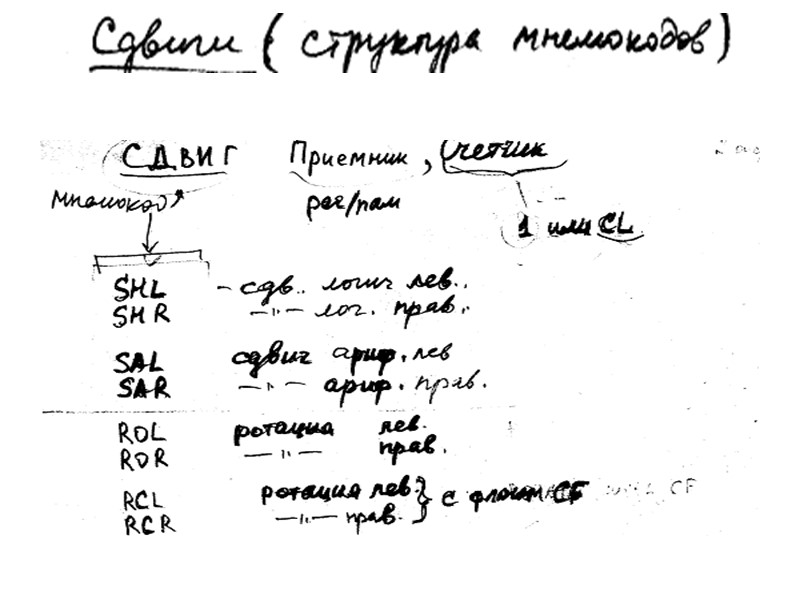 Сдвиги (структура мнемокодов)
СДВИГ Приемник, Счетчик
мнемокод рег/пам
1 или CL
SHL - сдв. логич лев.
SHR —"— лог. прав.
SAL сдвиг ариф. лев
SAR —"— ариф. прав.
ROL ротация лев.
ROR —"— прав.
RCL ротация лев. } с флагом CF CF
RCR —"— прав.